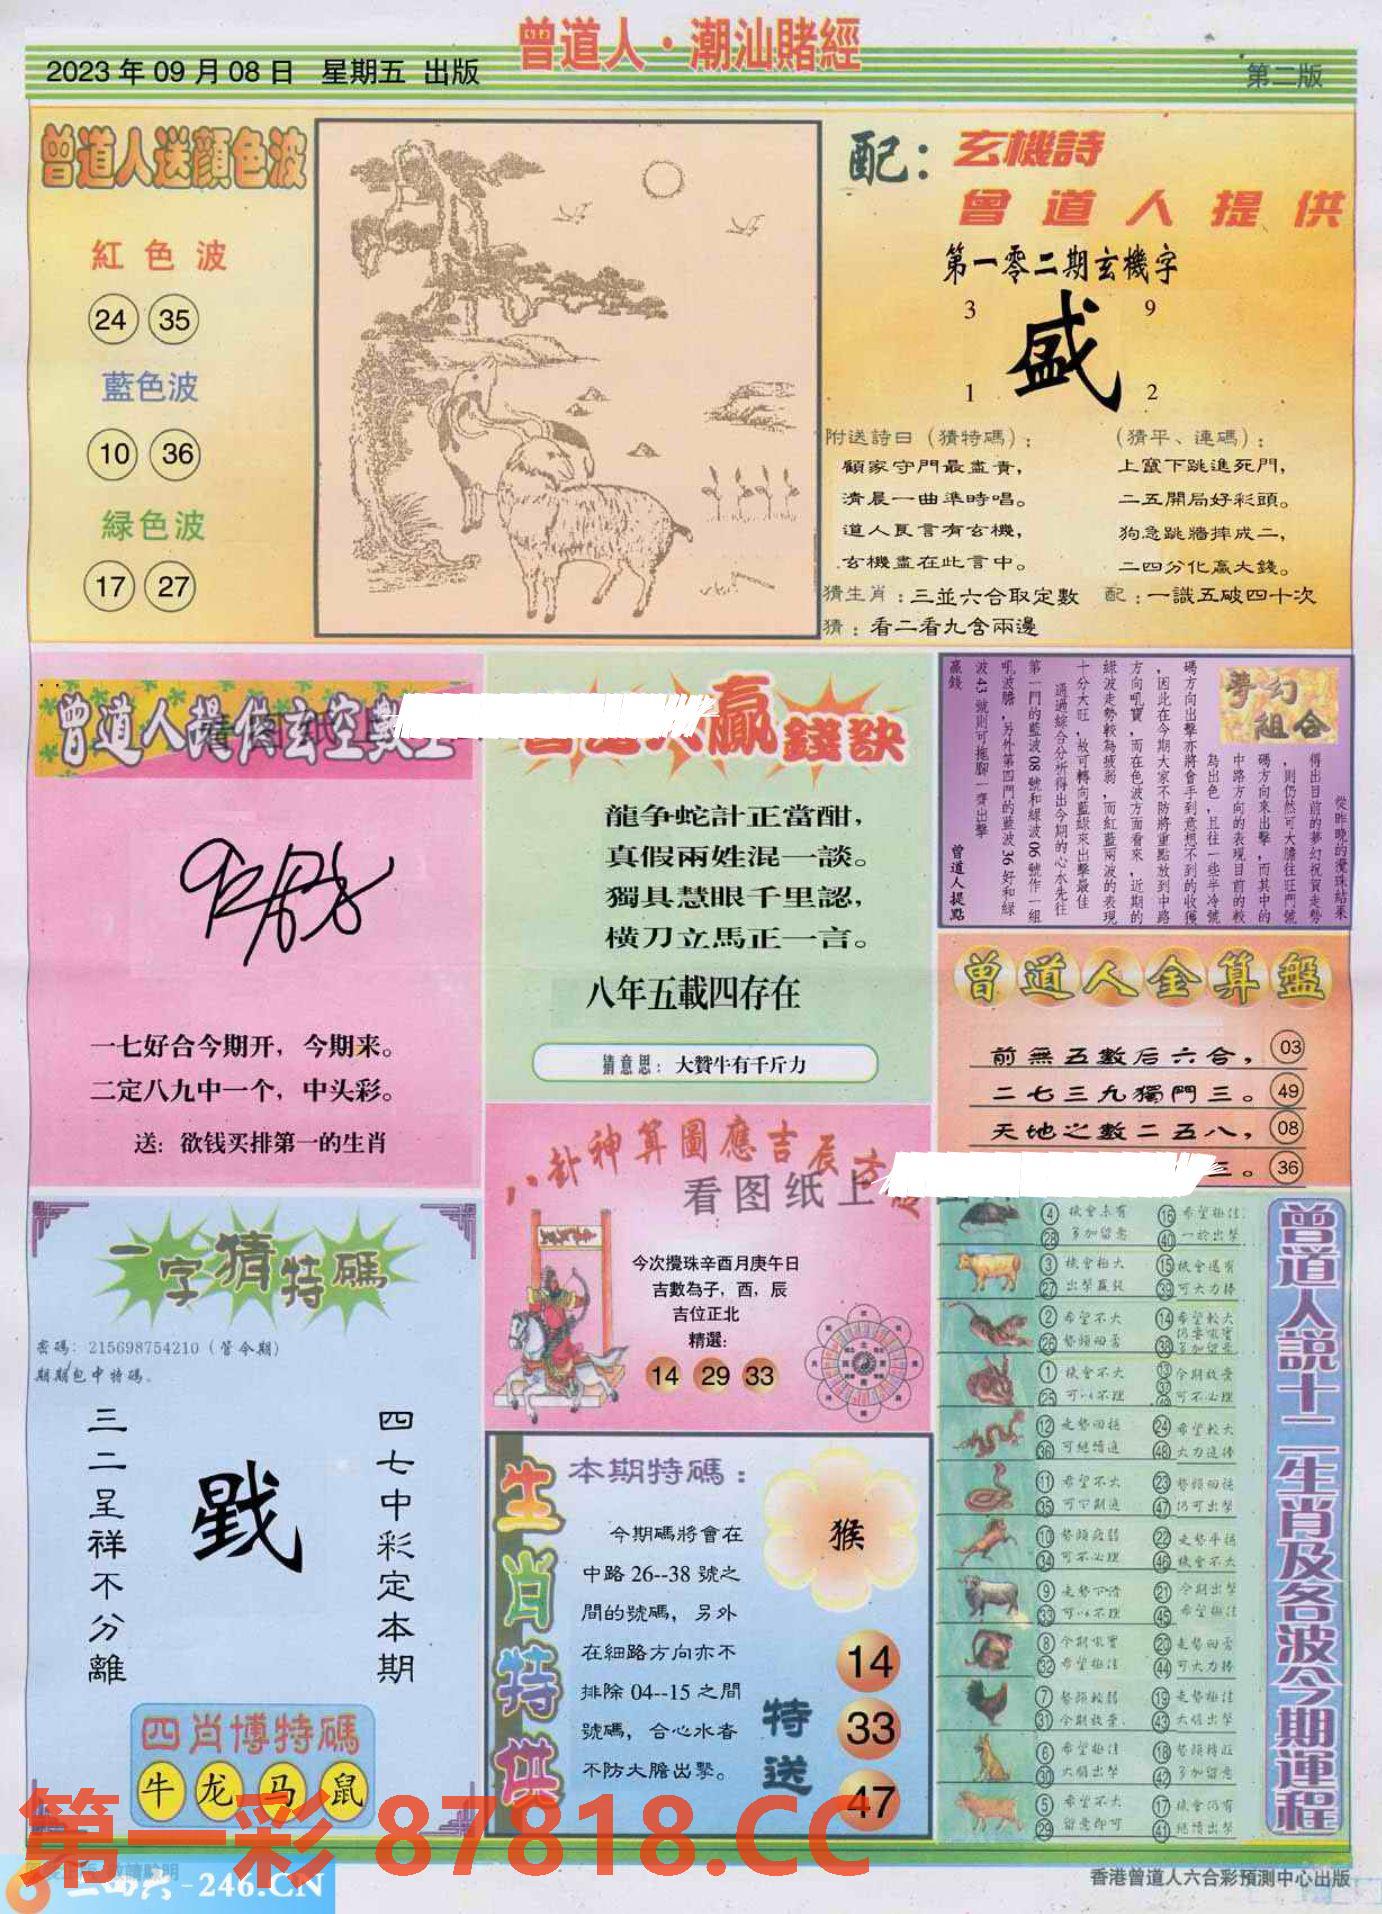 曾道人·潮汕賭經
2023年09月08日 星期五 出版
第二版
曾道人送顔色波
紅色波
24 35
藍色波
10 36
緑色波
17 27
配：玄機詩
曾道人提供
第一零二期玄機字
3 9
盛
1 2
附送詩曰（猜特碼）：
顧家守門最盡責，
清晨一曲準時唱。
道人良言有玄機，
玄機盡在此言中。
猜生肖：三並六合取定數
猜：看二看九含兩邊
（猜平、連碼）：
上竄下跳進死門，
二五開局好彩頭。
狗急跳牆摔成二，
二四分化贏大錢。
配：一識五破四十次
一七好合今期开，今期来。
二定八九中一个，中头彩。
送：欲钱买排第一的生肖
贏錢訣
龍争蛇計正當酣，
真假兩姓混一談。
獨具慧眼千里認，
橫刀立馬正一言。
八年五載四存在
猜意思：大贊牛有千斤力
夢幻組合
從昨晚的攪珠結果
得出目前的夢幻祝賀走勢
，則仍然可大膽往旺門號
碼方向來出擊，而其中的
中路方向的表現目前的較
為出色，且往一些半冷號
碼方向出擊亦將會手到意想不到的收獲
，因此在今期大家不防將重點放到中路
方向吼寶，而在色波方面看來，近期的
綠波走勢較為疲弱，而紅藍兩波的表現
十分大旺，故可轉向藍綠來出擊最佳
通過綜合分析得出今期的心水先往
第一門的藍波08號和綠波06號作一組
吼波膽，另外第四門的藍波36好和綠
波43號則可拖腳一齊出擊
贏錢
曾道人提點
曾道人金算盤
前無五數后六合， 03
二七三九獨門三。 49
天地之數二五八， 08
三。 36
八卦神算圖應吉辰方位
看图纸上
今次攪珠辛酉月庚午日
吉數為子，酉，辰
吉位正北
精選：
14 29 33
一字猜特碼
密碼：215698754210（管今期）
期期包中特碼。
三二呈祥不分離
戥
四七中彩定本期
四肖博特碼
牛 龙 马 鼠
生肖特供
本期特碼：
今期碼將會在
中路26--38號之
間的號碼，另外
在細路方向亦不
排除04--15之間
號碼，合心水者
不防大膽出擊。
猴
特送
14
33
47
曾道人説十二生肖及各波今期運程
4 機會未有 16 希望極佳
28 多加留意 40 一於出擊
3 機會極大 15 機會還有
27 出擊贏錢 39 可大力捧
2 希望不大 14 希望較大
26 勢頭回落 38 多加留意
1 機會不大 13 今期放棄
25 可以不理 可不必理
12 走勢回穩 24 希望較大
36 可繼續追 48 大力追捧
11 希望不大 23 勢頭回穩
35 可下期追 47 仍可出擊
10 勢頭疲弱 22 走勢平穩
34 可不必理 46 機會不大
9 走勢下滑 21 今期出擊
33 可以不理 45 希望極佳
8 今期吼寶 20 走勢回落
32 希望極佳 44 可大力捧
7 勢頭較弱 19 走勢極佳
31 今期放棄 43 大膽出擊
6 希望極佳 18 勢頭轉旺
30 大膽出擊 42 多加留意
5 希望不大 17 機會仍有
29 留意即可 41 繼續出擊
第一彩 87818.CC
二四六 - 246.CN
香港曾道人六合彩預測中心出版